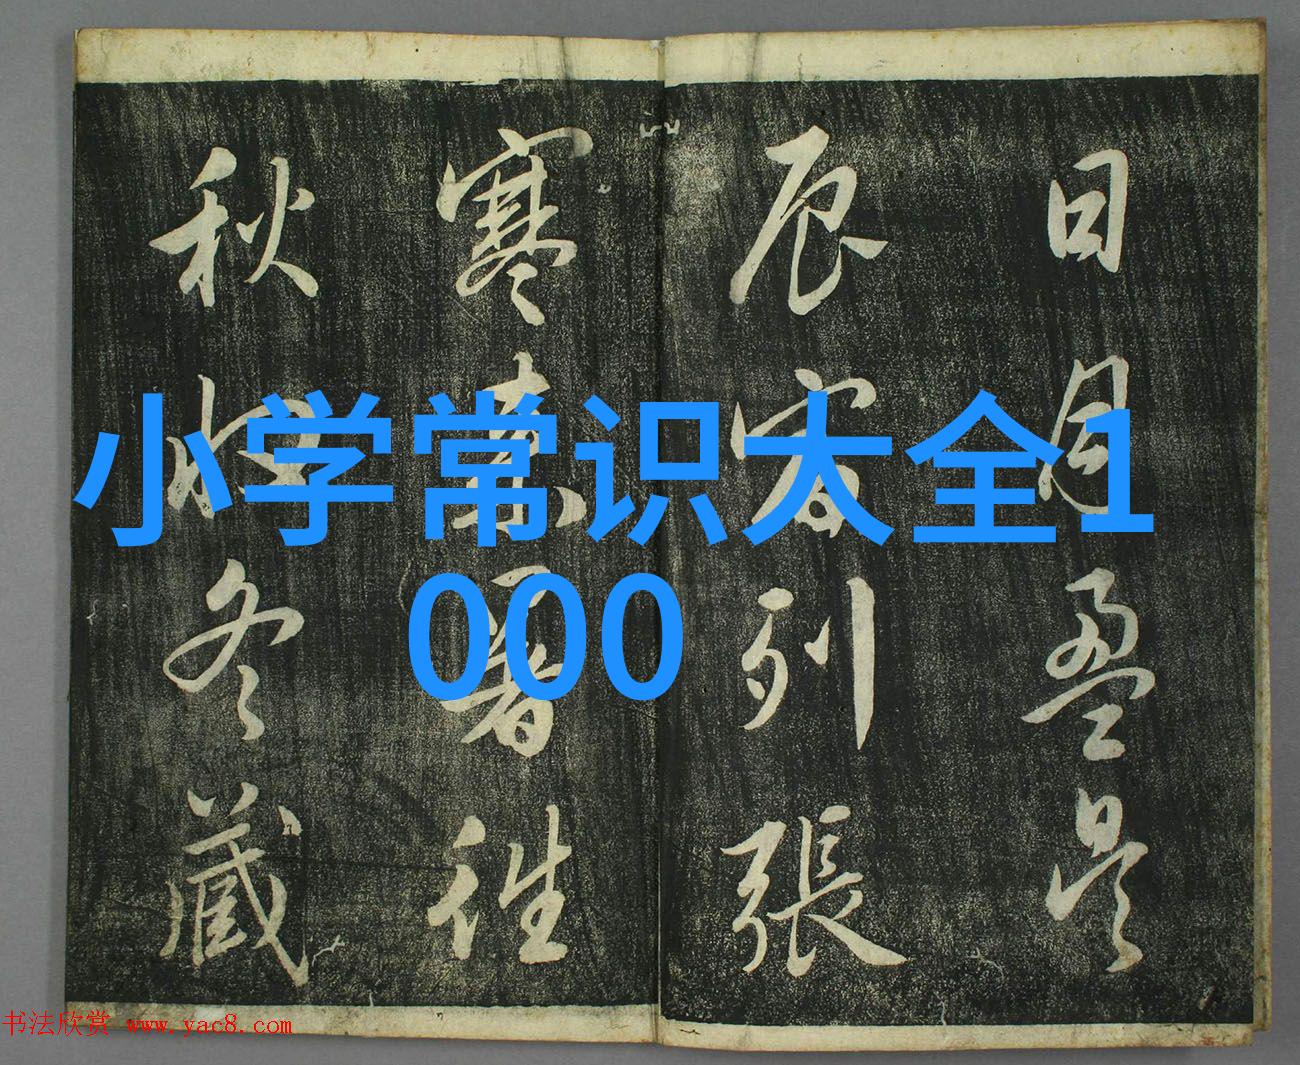 日月盈昃
辰宿列張
寒來暑往
秋收冬藏
小学常识大全1
000
书法欣赏 www.yac8.com